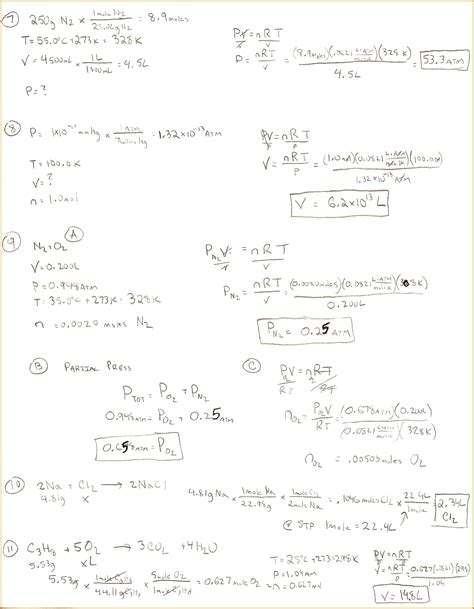 ⑦ 250g N₂ × 1mole N₂ / 28.02g N₂ = 8.9 moles
T = 55.0°C + 273K = 328K
V = 4500mL × 1L / 1000mL = 4.5L
P = ?
PV = nRT
P = nRT / V = (8.9moles)(.0821 L·ATM / mol·K)(328K) / 4.5L = 53.3 ATM
⑧ P = mmHg × 1 ATM / 760mmHg = 1.32×10⁻¹³ ATM
T = 100.0K
V = ?
n = 1.0mol
PV = nRT
V = nRT / P = (1.0mol)(0.0821 L·ATM / mol·K)(100.0K) / 1.32×10⁻¹³ ATM
V = 6.2×10¹³ L
⑨ N₂ + O₂ Ⓐ
V = 0.200L
P = 0.948ATM
T = 35.0°C + 273K = 328K
n = 0.0020 moles N₂
P_N₂ V = nRT / V
P_N₂ = nRT / V = (0.0020moles)(.0821 L·ATM / mol·K)(308K) / 0.200L
P_N₂ = 0.25 ATM
Ⓑ PARTIAL PRESS
P_TOT = P_O₂ + P_N₂
0.948ATM = P_O₂ + 0.25ATM
= P_O₂
Ⓒ PV = nRT
n_O₂ = P_O₂V / RT = (0.678ATM)(0.200L) / (0.0821 L·ATM / mol·K)(328K)
n_O₂ = .00503 moles O₂
⑩ 2Na + Cl₂ → 2NaCl
4.81g x
4.81g Na × 1mole Na / 22.99g × 1mole Cl₂ / 2mole Na = .1046 moles Cl₂ × 22.4L / 1mole = 2.34L Cl₂
@ STP 1mole = 22.4L
⑪ C₃H₈ + 5O₂ → 3CO₂ + 4H₂O
5.53g xL
5.53g × 1mole C₃H₈ / 44.11g C₃H₈ × 5mole O₂ / 1mole C₃H₈ = 0.627 mole O₂
T = 25°C + 273 = 298K
P = 1.04atm
n = 0.627mol
PV = nRT
V = nRT / P = 0.627(.0821)(298) / 1.04
V = 14.8L